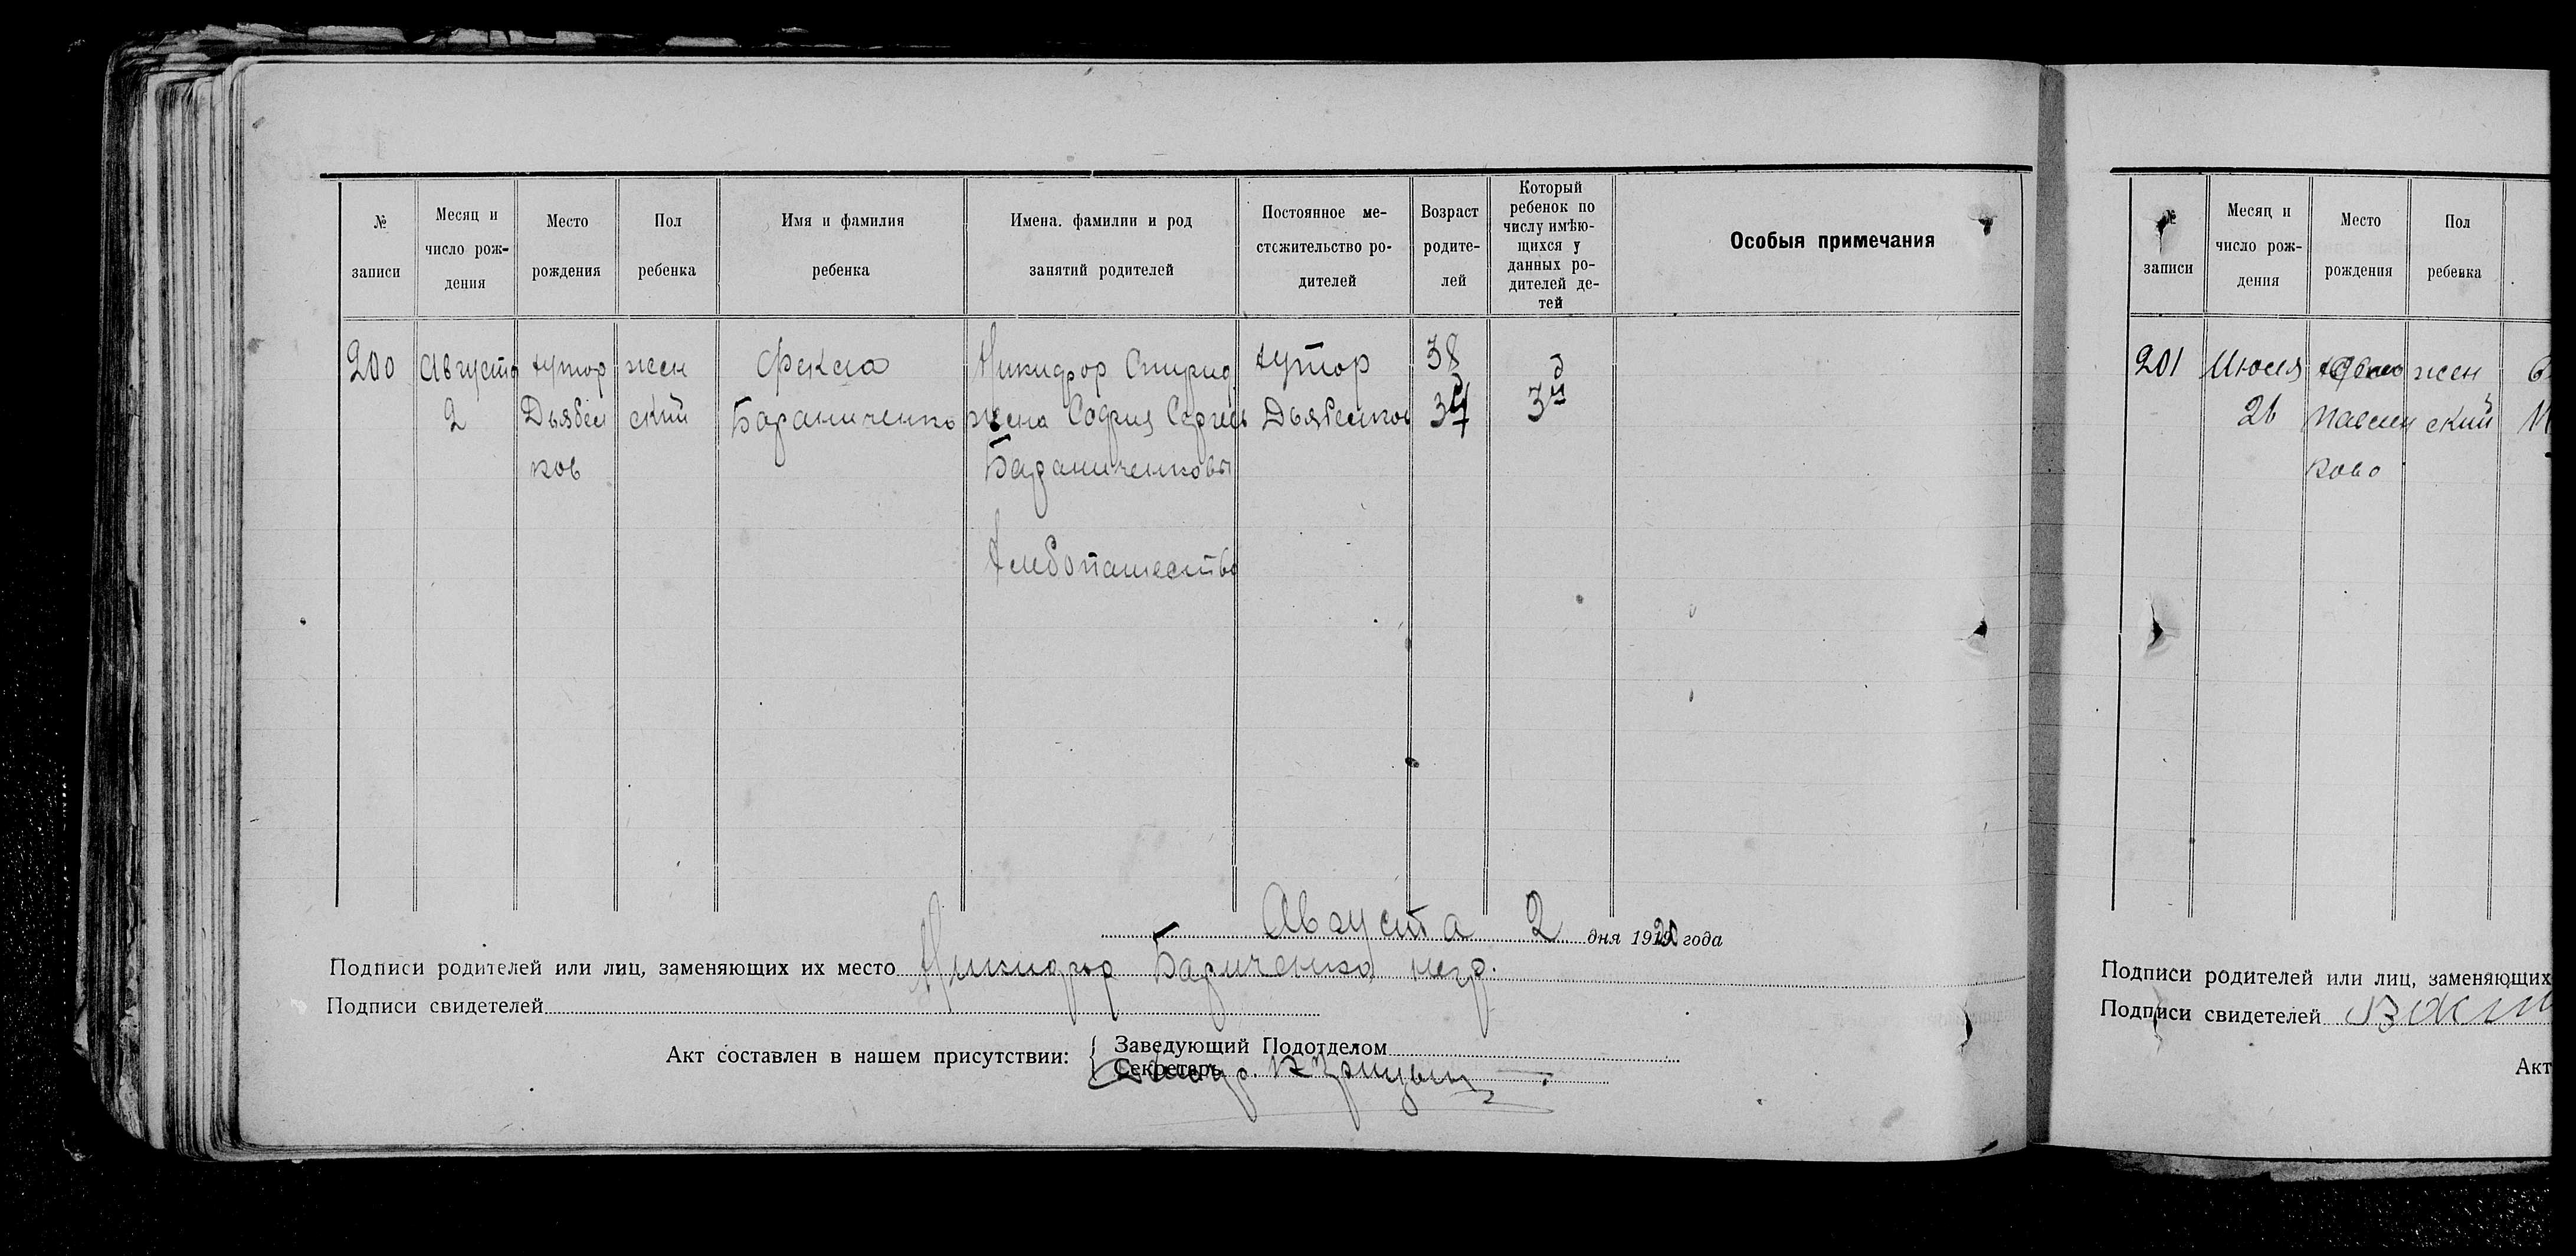 № записи
Месяц и число рож- дения
Место рождения
Пол ребенка
Имя и фамилия ребенка
Имена. фамилии и род занятий родителей
Постоянное ме- стожительство ро- дителей
Возраст родите- лей
Который ребенок по числу имѣю- щихся у данных ро- дителей де- тей
Особыя примечания
200 Августа хутор жен Фекла Никифор Спирид. хутор 38
2 Дьябел ский Бараниченко жена София Сергеев Дьябелков 34 3й
ков Бараниченковы
Хлебопашество
Августа 2 дня 1920 года
Подписи родителей или лиц, заменяющих их место Никифор Бариченко негр.
Подписи свидетелей
Акт составлен в нашем присутствии:
Заведующий Подотделом
Секретарь
№ записи
Месяц и число рож- дения
Место рождения
Пол ребенка
201 Июля жен
26 ский
ково
Подписи родителей или лиц, заменяющих
Подписи свидетелей
Акт